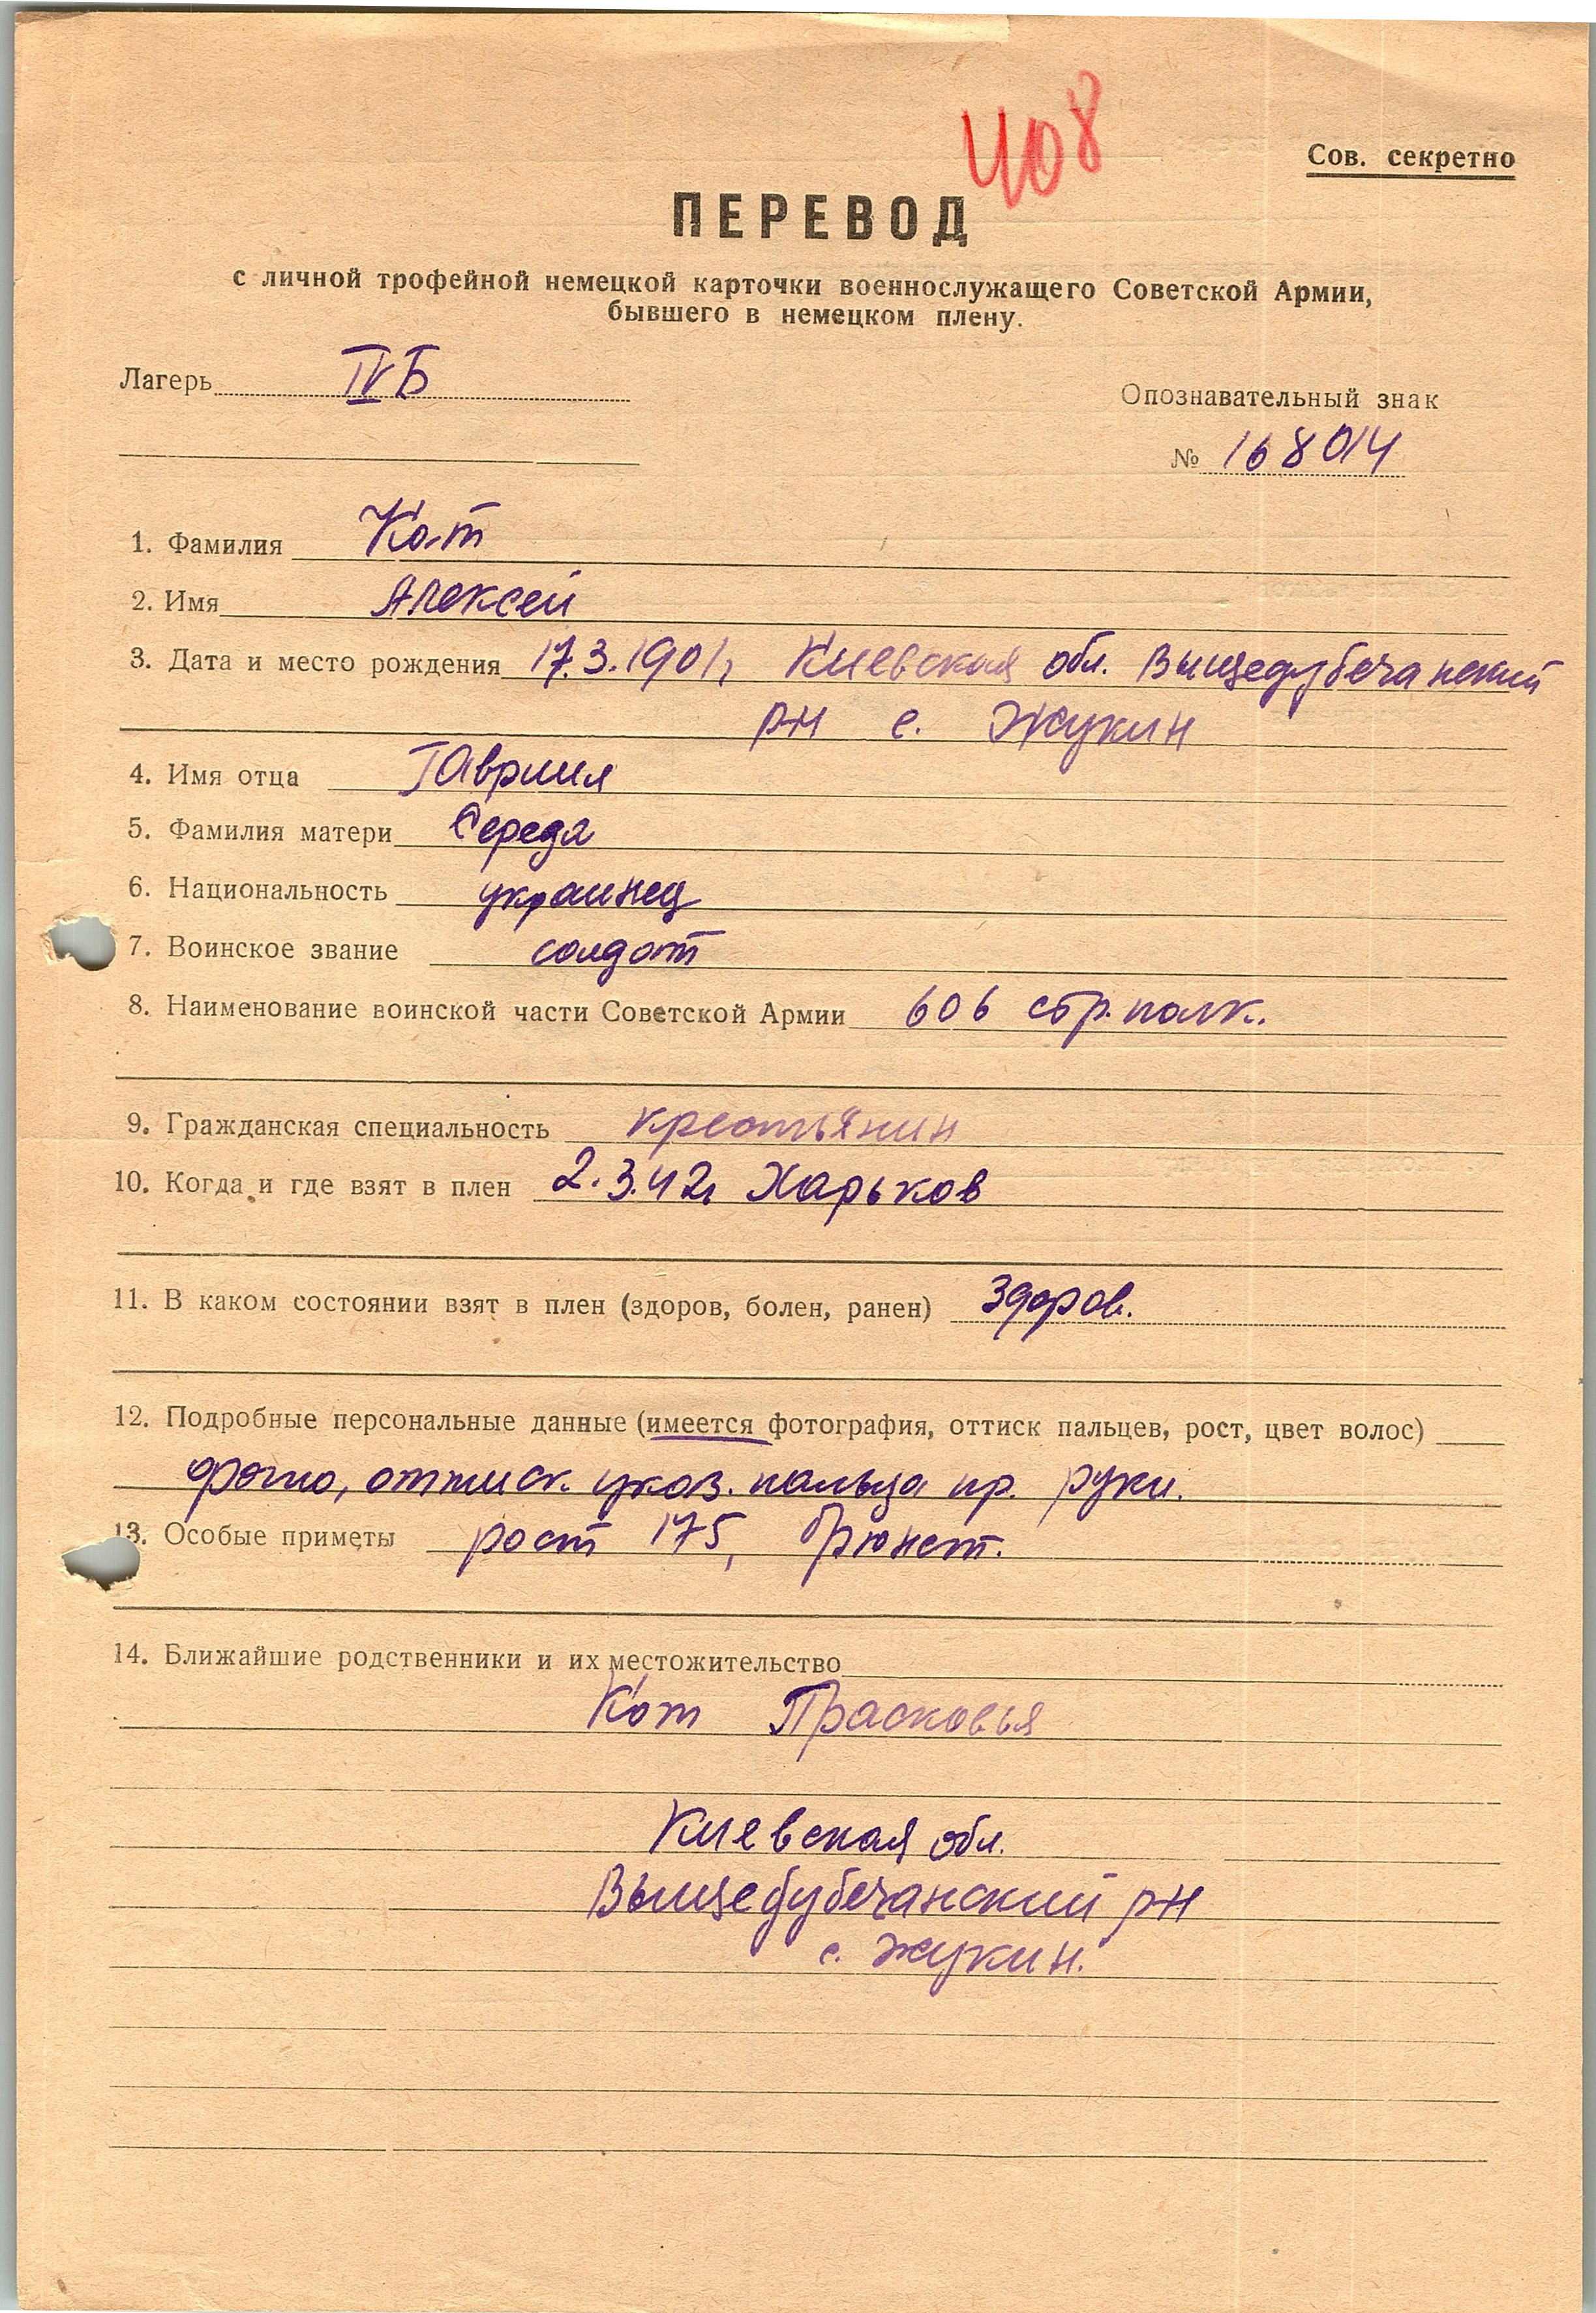 408
Сов. секретно
ПЕРЕВОД
с личной трофейной немецкой карточки военнослужащего Советской Армии,
бывшего в немецком плену.
Лагерь IVБ
Опознавательный знак
№ 168014
1. Фамилия Кот
2. Имя Алексей
3. Дата и место рождения 17.3.1901г Киевская обл. Вышедубечанский
р-н с. Жукин
4. Имя отца Гавриил
5. Фамилия матери Середа
6. Национальность украинец
7. Воинское звание солдат
8. Наименование воинской части Советской Армии 606 стр. полк.
9. Гражданская специальность крестьянин
10. Когда и где взят в плен 2.3.42г Харьков
11. В каком состоянии взят в плен (здоров, болен, ранен) Здоров.
12. Подробные персональные данные (имеется фотография, оттиск пальцев, рост, цвет волос)
фото, оттиск указ. пальца пр. руки.
13. Особые приметы рост 175, брюнет.
14. Ближайшие родственники и их местожительство
Кот Прасковья
Киевская обл.
Вышедубечанский р-н
с. Жукин.